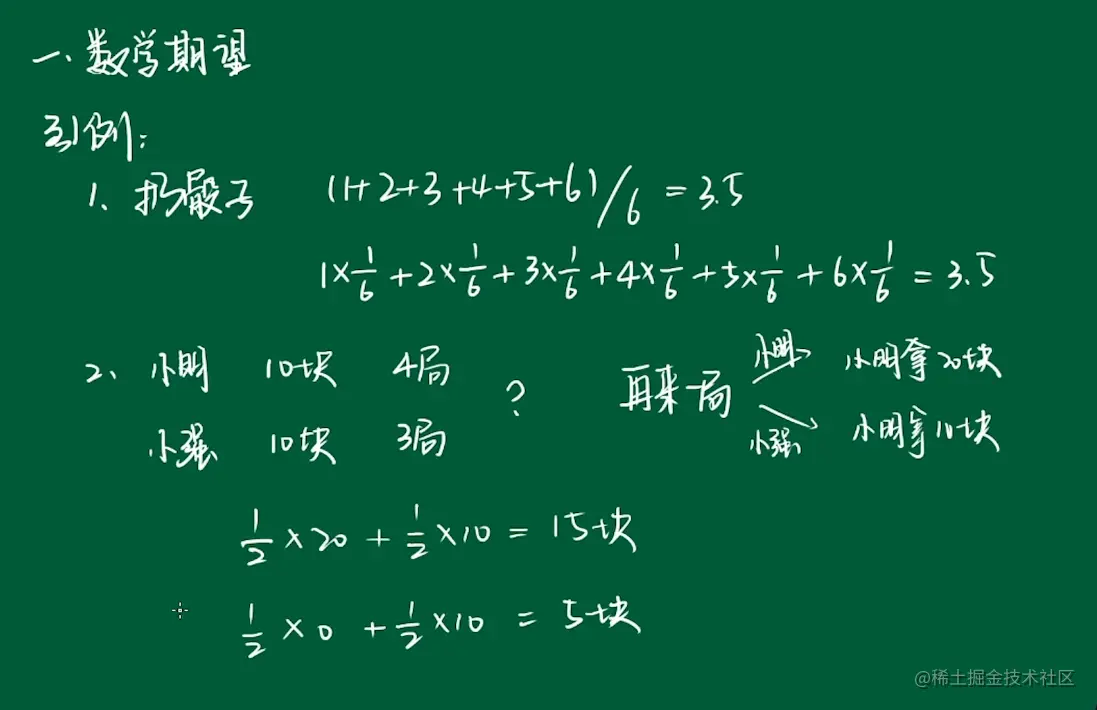 一、数学期望
引例:
1、扔骰子 (1+2+3+4+5+6)/6 = 3.5
1×1/6 + 2×1/6 + 3×1/6 + 4×1/6 + 5×1/6 + 6×1/6 = 3.5
2、小明 10块 4局 ? 再来一局 小明 小明拿20块
小强 10块 3局 小强 小明拿10块
1/2 × 20 + 1/2 × 10 = 15块
1/2 × 0 + 1/2 × 10 = 5块
@稀土掘金技术社区